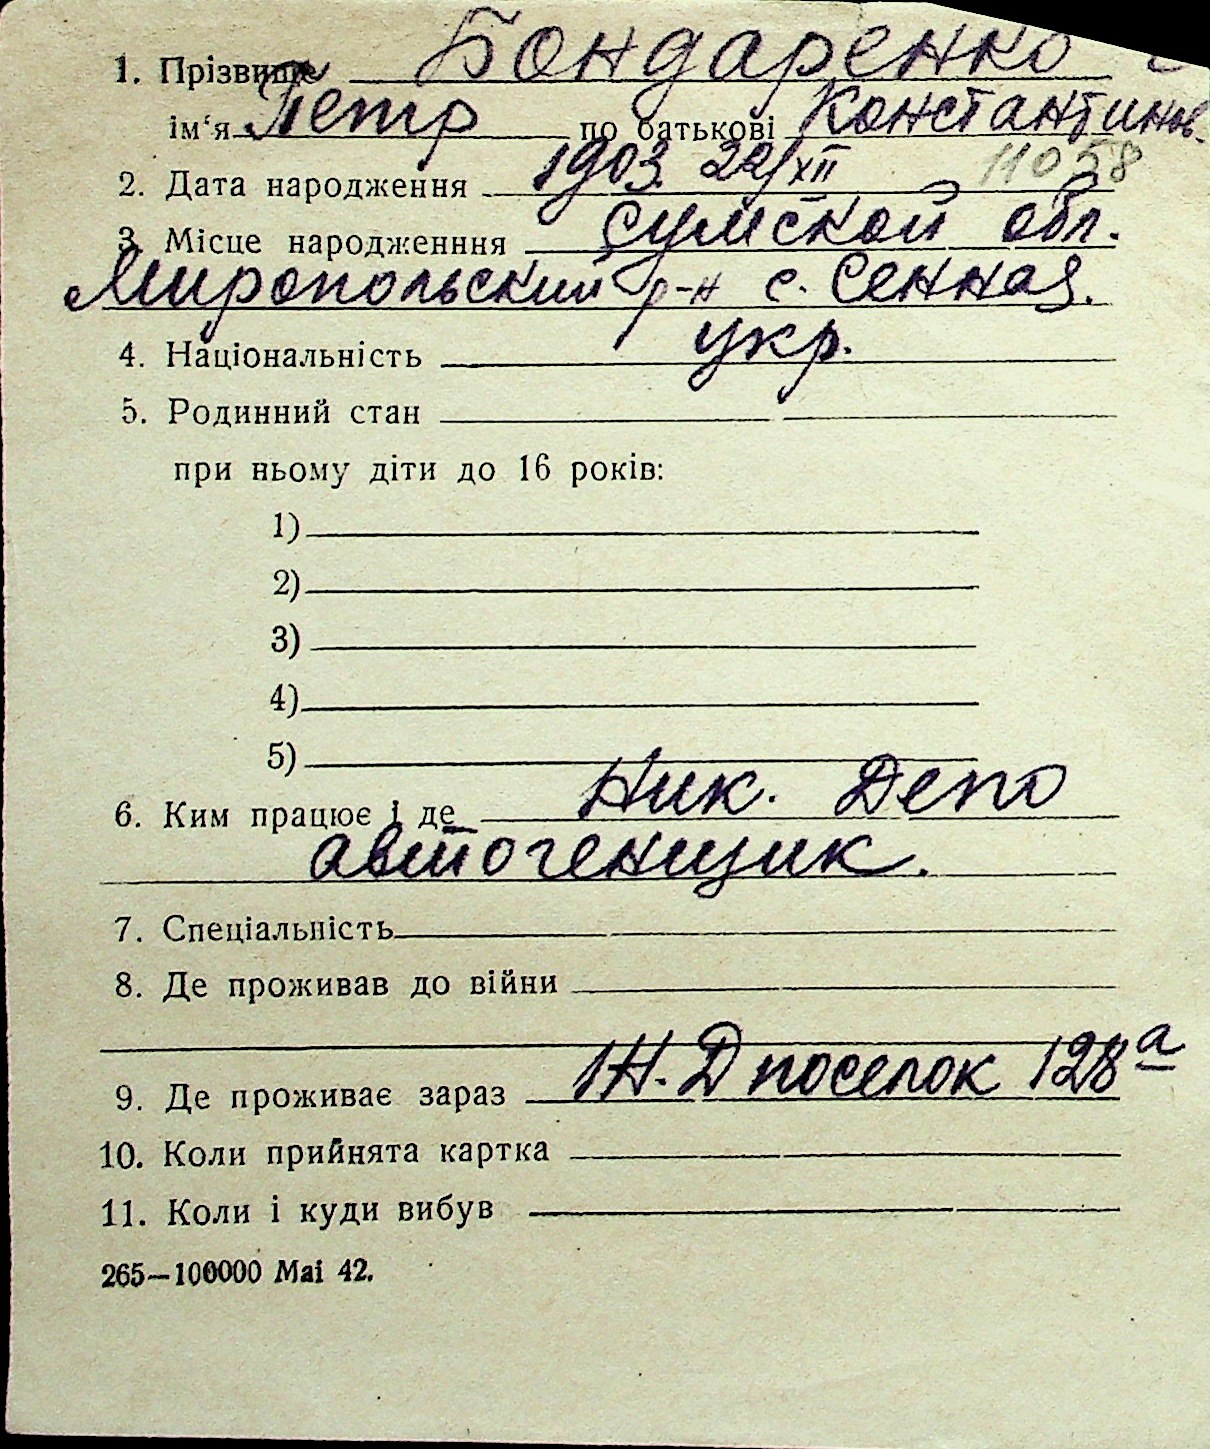 1. Прізвище Бондаренко
ім‘я Петр по батькові Константинов.
2. Дата народження 1903. 22/XII 11058
3. Місце народженння Сумской обл.
Миропольский р-н с. Сенная.
4. Національність укр.
5. Родинний стан
при ньому діти до 16 років:
1)
2)
3)
4)
5)
6. Ким працює і де Ник. Депо
автогенщик.
7. Спеціальність
8. Де проживав до війни
9. Де проживає зараз 1Ж.Д поселок 128а
10. Коли прийнята картка
11. Коли і куди вибув
265—100000 Mai 42.